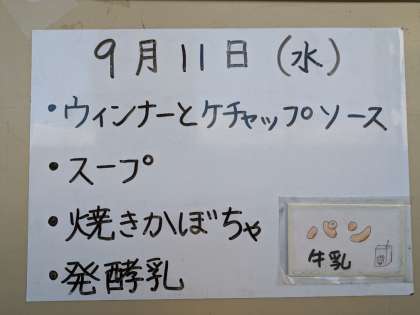 9月11日(水)
・ウィンナーとケチャップソース
・スープ
・焼きかぼちゃ
・発酵乳
パン
牛乳